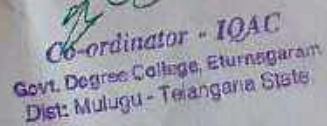 Co-ordinator - IQAC
Govt. Degree College, Eturnagaram
Dist: Mulugu - Telangana State